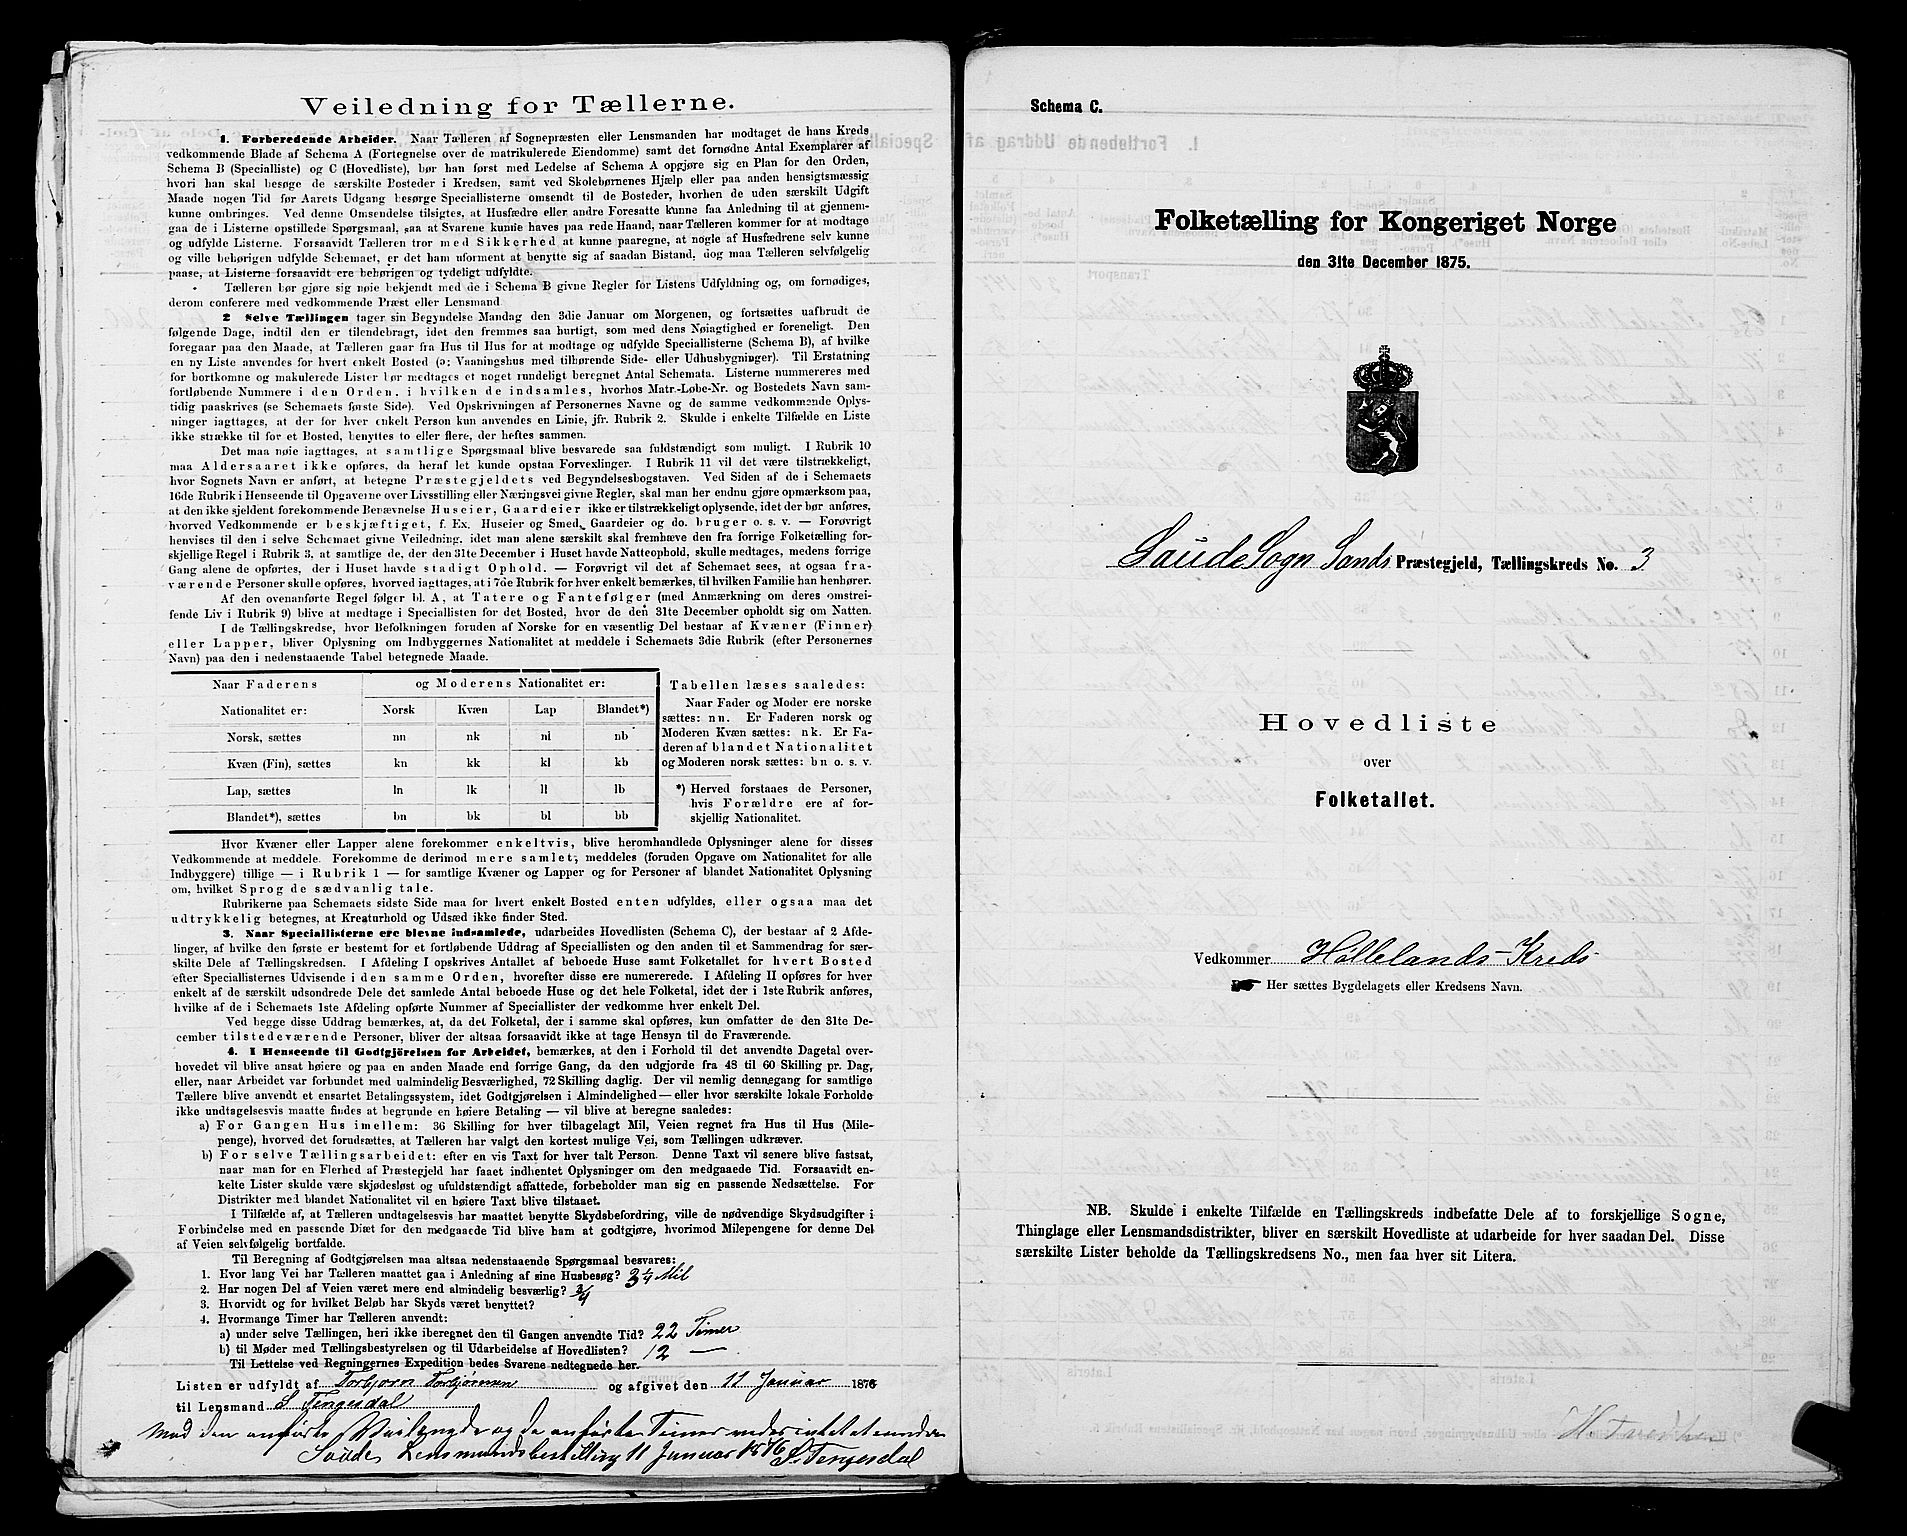 Veiledning for Tællerne.
1. Forberedende Arbeider. Naar Tælleren af Sognepræsten eller Lensmanden har modtaget de hans Kreds
vedkommende Blade af Schema A (Fortegnelse over de matrikulerede Eiendomme) samt det fornødne Antal Exemplarer af
Schema B (Specialliste) og C (Hovedliste), bør han først med Ledelse af Schema A opgjøre sig en Plan for den Orden,
hvori han skal besøge de særskilte Bosteder i Kredsen, samt ved Skolebørnenes Hjælp eller paa anden hensigtsmæssig
Maade nogen Tid før Aarets Udgang besørge Speciallisterne omsendt til de Bosteder, hvorhen de uden særskilt Udgift
kunne ombringes. Ved denne Omsendelse tilsigtes, at Husfædre eller andre Foresatte kunne faa Anledning til at gjennem-
gaa de i Listerne opstillede Spørgsmaal, saa at Svarene kunne haves paa rede Haand, naar Tælleren kommer for at modtage
og udfylde Listerne. Forsaavidt Tælleren tror med Sikkerhed at kunne paaregne, at nogle af Husfædrene selv kunne
og ville behørigen udfylde Schemaet, er det ham uforment at benytte sig af saadan Bistand, dog maa Tælleren selvfølgelig
paase, at Listerne forsaavidt ere behørigen og tydeligt udfyldte.
Tælleren bør gjøre sig nøie bekjendt med de i Schema B givne Regler for Listens Udfyldning og, om fornødiges,
derom conferere med vedkommende Præst eller Lensmand
2 Selve Tællingen tager sin Begyndelse Mandag den 3die Januar om Morgenen, og fortsættes uafbrudt de
følgende Dage, indtil den er tilendebragt, idet den fremmes saa hurtigt, som med dens Nøiagtighed er foreneligt. Den
foregaar paa den Maade, at Tælleren gaar fra Hus til Hus for at modtage og udfylde Speciallisterne (Schema B), af hvilke
en ny Liste anvendes for hvert enkelt Bosted (ɔ: Vaaningshus med tilhørende Side- eller Udhusbygninger). Til Erstatning
for bortkomne og makulerede Lister bør medtages et noget rundeligt beregnet Antal Schemata. Listerne nummereres med
fortløbende Nummere i den Orden, i hvilken de indsamles, hvorhos Matr.-Løbe-Nr. og Bostedets Navn sam-
tidig paaskrives (se Schemaets første Side). Ved Opskrivningen af Personernes Navne og de samme vedkommende Oplys-
ninger iagttages, at der for hver enkelt Person kun anvendes en Linie, jfr. Rubrik 2. Skulde i enkelte Tilfælde en Liste
ikke strække til for et Bosted, benyttes to eller flere, der heftes sammen.
Det maa nøie iagttages, at samtlige Spørgsmaal blive besvarede saa fuldstændigt som muligt. I Rubrik 10
maa Aldersaaret ikke opføres, da heraf let kunde opstaa Forvexlinger. I Rubrik 11 vil det være tilstrækkeligt,
hvor Sognets Navn er anført, at betegne Præstegjeldets ved Begyndelsesbogstaven. Ved Siden af de i Schemaets
16de Rubrik i Henseende til Opgaverne over Livsstilling eller Næringsvei givne Regler, skal man her endnu gjøre opmærksom paa,
at den ikke sjeldent forekommende Benævnelse Huseier, Gaardeier ikke er tilstrækkeligt oplysende, idet der bør anføres,
hvorved Vedkommende er beskjæftiget, f. Ex. Huseier og Smed, Gaardeier og do. bruger o. s. v. — Forøvrigt
henvises til den i selve Schemaet givne Veiledning, idet man alene særskilt skal fremhæve den fra forrige Folketælling for-
skjellige Regel i Rubrik 3, at samtlige de, der den 31te December i Huset havde Natteophold, skulle medtages, medens forrige
Gang alene de opførtes, der i Huset havde stadigt Ophold. — Forøvrigt vil det af Schemaet sees, at ogsaa fra-
værende Personer skulle opføres, hvorved iagttages, at i 7de Rubrik for hver enkelt bemærkes, til hvilken Familie han henhører.
Af den ovenanførte Regel følger bl. A, at Tatere og Fantefølger (med Anmærkning om deres omstrei-
fende Liv i Rubrik 9) blive at medtage i Speciallisten for det Bosted, hvor de den 31te December opholdt sig om Natten.
I de Tællingskredse, hvor Befolkningen foruden af Norske for en væsentlig Del bestaar af Kvæner (Finner)
eller Lapper, bliver Oplysning om Indbyggernes Nationalitet at meddele i Schemaets 3die Rubrik (efter Personernes
Navn) paa den i nedenstaaende Tabel betegnede Maade.
Naar Faderens og Moderens Nationalitet er:
Nationalitet er: Norsk Kvæn Lap Blandet*)
Norsk, sættes nn nk nl nb
Kvæn (Fin), sættes kn kk kl kb
Lap, sættes ln lk ll lb
Blandet*), sættes bn bk bl bb
Tabellen læses saaledes:
Naar Fader og Moder ere norske
sættes: nn. Er Faderen norsk og
Moderen Kvæn sættes: nk. Er Fa-
deren af blandet Nationalitet
og Moderen norsk sættes: bn o. s. v.
*) Herved forstaaes de Personer,
hvis Forældre ere af for-
skjellig Nationalitet.
Hvor Kvæner eller Lapper alene forekommer enkeltvis, blive heromhandlede Oplysninger alene for disses
Vedkommende at meddele. Forekomme de derimod mere samlet, meddeles (foruden Opgave om Nationalitet for alle
Indbyggere) tillige — i Rubrik 1 — for samtlige Kvæner og Lapper og for Personer af blandet Nationalitet Oplysning
om, hvilket Sprog de sædvanlig tale.
Rubrikerne paa Schemaets sidste Side maa for hvert enkelt Bosted enten udfyldes, eller ogsaa maa det
udtrykkelig betegnes, at Kreaturhold og Udsæd ikke finder Sted.
3. Naar Speciallisterne ere blevne indsamlede, udarbeides Hovedlisten (Schema C), der bestaar af 2 Afde-
linger, af hvilke den første er bestemt for et fortløbende Uddrag af Speciallisten og den anden til et Sammendrag for sær-
skilte Dele af Tællingskredsen. I Afdeling I opgives Antallet af beboede Huse samt Folketallet for hvert Bosted
efter Speciallisternes Udvisende i den samme Orden, hvorefter disse ere numererede. I Afdeling II opføres for hver
enkelt af de særskilt udsondrede Dele det samlede Antal beboede Huse og det hele Folketal, idet der i 1ste Rubrik anføres,
hvilke af de i Schemaets 1ste Afdeling opførte Nummer af Speciallister der vedkomme hver enkelt Del.
Ved begge disse Uddrag bemærkes, at, da det Folketal, der i samme skal opføres, kun omfatter de den 31te De-
cember tilstedeværende Personer, bliver der altsaa forsaavidt ikke at tage Hensyn til de Fraværende.
4. I Henseende til Godtgjörelsen for Arbeidet, bemærkes, at den i Forhold til det anvendte Dagetal over-
hovedet vil blive ansat høiere og paa en anden Maade end forrige Gang, da den udgjorde fra 48 til 60 Skilling pr. Dag,
eller, naar Arbeidet var forbundet med ualmindelig Besværlighed, 72 Skilling daglig. Der vil nemlig dennegang for samtlige
Tællere blive anvendt et ensartet Betalingssystem, idet Godtgjörelsen i Almindelighed — eller hvor særskilte lokale Forholde
ikke undtagelsesvis maatte findes at begrunde en høiere Betaling — vil blive at beregne saaledes:
a) For Gangen Hus imellem: 36 Skilling for hver tilbagelagt Mil, Veien regnet fra Hus til Hus (Mile-
penge), hvorved det forudsættes, at Tælleren har valgt den kortest mulige Vei, som Tællingen udkræver.
b) For selve Tællingsarbeidet: efter en vis Taxt for hver talt Person. Denne Taxt vil senere blive fastsat,
naar man for en Flerhed af Præstegjeld har faaet indhentet Oplysninger om den medgaaede Tid. Forsaavidt en-
kelte Lister skulde være skjødesløst og ufuldstændigt affattede, forbeholder man sig en passende Nedsættelse. For
Distrikter med blandet Nationalitet vil en høiere Taxt blive tilstaaet.
I Tilfælde af, at Tælleren undtagelsesvis har maattet benytte Skydsbefordring, ville de nødvendige Skydsudgifter i
Forbindelse med en passende Diæt for den medgaaede Tid blive ham at godtgjøre, hvorimod Milepengene for denne Del
af Veien selvfølgelig bortfalde.
Til Beregning af Godtgjørelsen maa altsaa nedenstaaende Spørgsmaal besvares:
1. Hvor lang Vei har Tælleren maattet gaa i Anledning af sine Husbesøg? 3¼ Mil
2. Har nogen Del af Veien været mere end almindelig besværlig? 3/4
3. Hvorvidt og for hvilket Beløb har Skyds været benyttet?
4. Hvormange Timer har Tælleren anvendt:
a) under selve Tællingen, heri ikke iberegnet den til Gangen anvendte Tid? 22 Timer
b) til Møder med Tællingsbestyrelsen og til Udarbeidelse af Hovedlisten? 12 —
Til Lettelse ved Regningernes Expedition bedes Svarene nedtegnede her.
Listen er udfyldt af Torbjørn Torbjørnsen og afgivet den 11 Januar 1876
til Lensmand S Tengesdal
Mod den anførte Veilængde og de anførte Timer vides intet at
Saude Lensmandsbestilling 11 Januar 1876 S. Tengesdal
Schema C.
Folketælling for Kongeriget Norge
den 31te December 1875.
Saude Sogn Sands Præstegjeld, Tællingskreds No. 3
Hovedliste
over
Folketallet.
Vedkommer Hallelands-Kreds
Her sættes Bygdelagets eller Kredsens Navn.
NB. Skulde i enkelte Tilfælde en Tællingskreds indbefatte Dele af to forskjellige Sogne,
Thinglage eller Lensmandsdistrikter, bliver en særskilt Hovedliste at udarbeide for hver saadan Del. Disse
særskilte Lister beholde da Tællingskredsens No., men faa hver sit Litera.